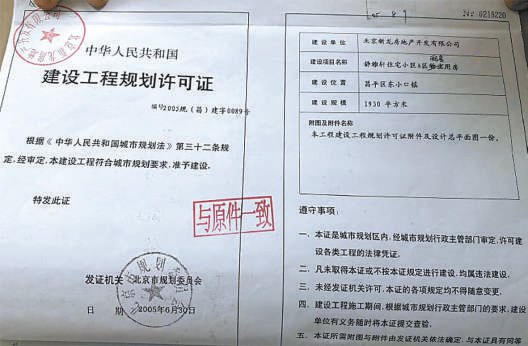 中华人民共和国
建设工程规划许可证
编号2005规(昌)建字0089号
根据《中华人民共和国城市规划法》第三十二条规
定,经审定,本建设工程符合城市规划要求,准予建设。
特发此证
与原件一致
发证机关 北京市规划委员会
2005年6月30日
0218220
建设单位 北京新龙房地产开发有限公司
建设项目名称 静雅轩住宅小区B区用房
建设位置 昌平区东小口镇
建设规模 1930 平方米
附图及附件名称
本工程建设工程规划许可证附件及设计总平面图一份。
遵守事项:
一、本证是城市规划区内,经城市规划行政主管部门审定,许可建
设各类工程的法律凭证。
二、凡未取得本证或不按本证规定进行建设,均属违法建设。
三、未经发证机关许可,本证的各项规定均不得随意变更。
四、建设工程施工期间,根据城市规划行政主管部门的要求,建设
单位有义务随时将本证提交查验。
五、本证所需附图与附件由发证机关依法确定,与本证具有同等